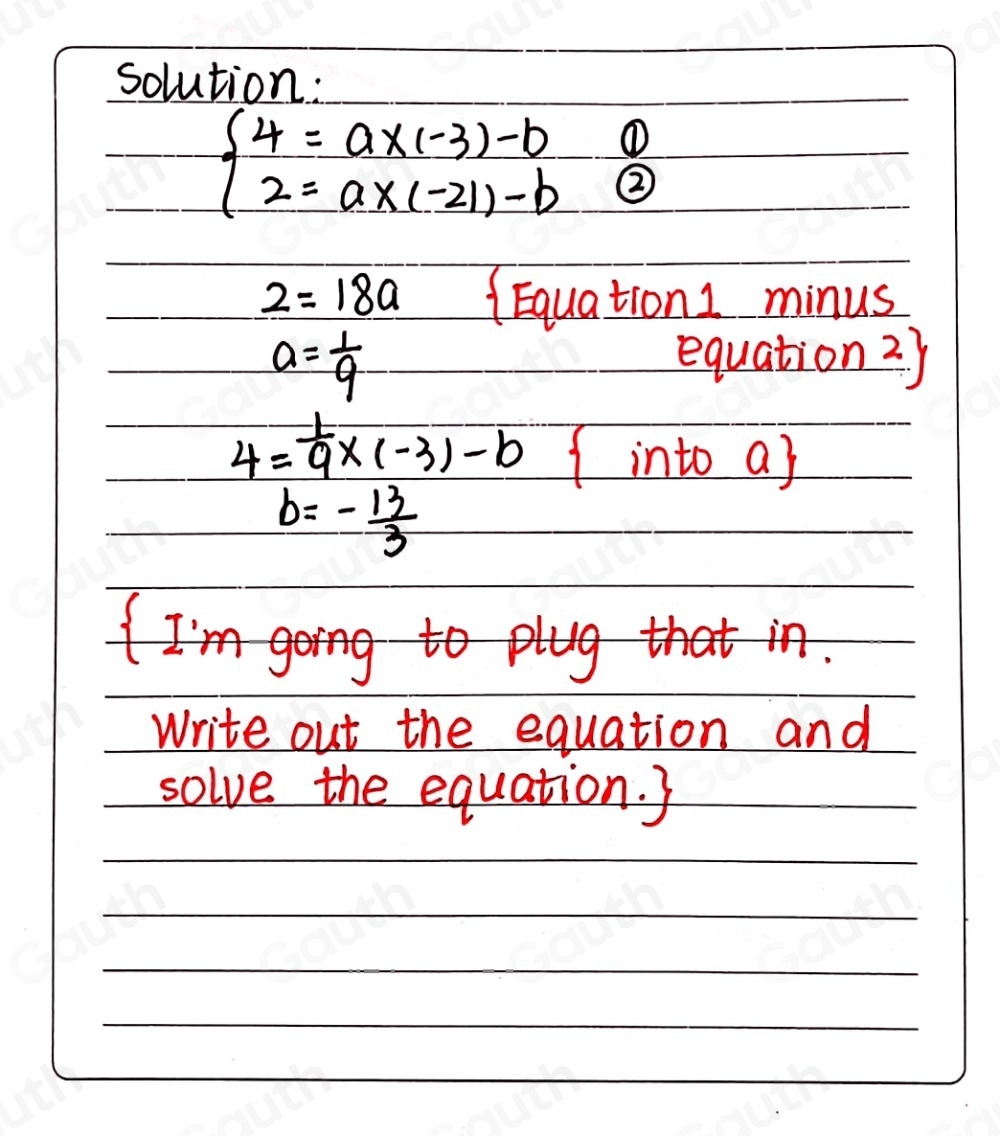 Solution:
{4 = a×(-3)-b ①
2 = a×(-21)-b ②
2 = 18a {Equation1 minus
a = 1/9 equation 2}
4 = 1/9×(-3)-b { into a}
b = -13/3
{ I'm going to plug that in.
Write out the equation and
solve the equation.}
Gauth